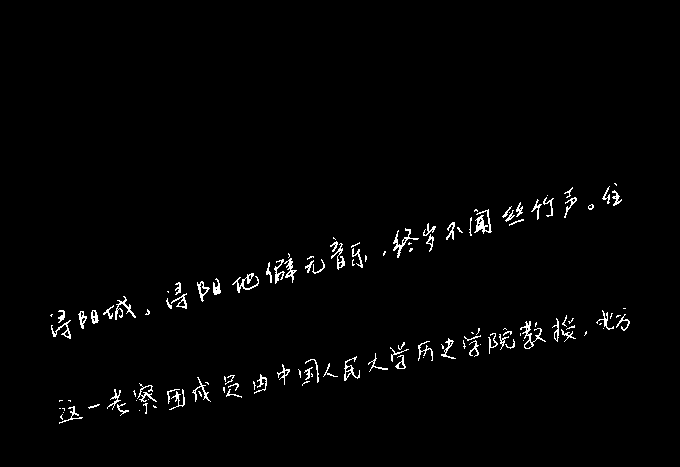 浔阳城，浔阳地僻无音乐，终岁不闻丝竹声。住
这一考察团成员由中国人民大学历史学院教授，北方